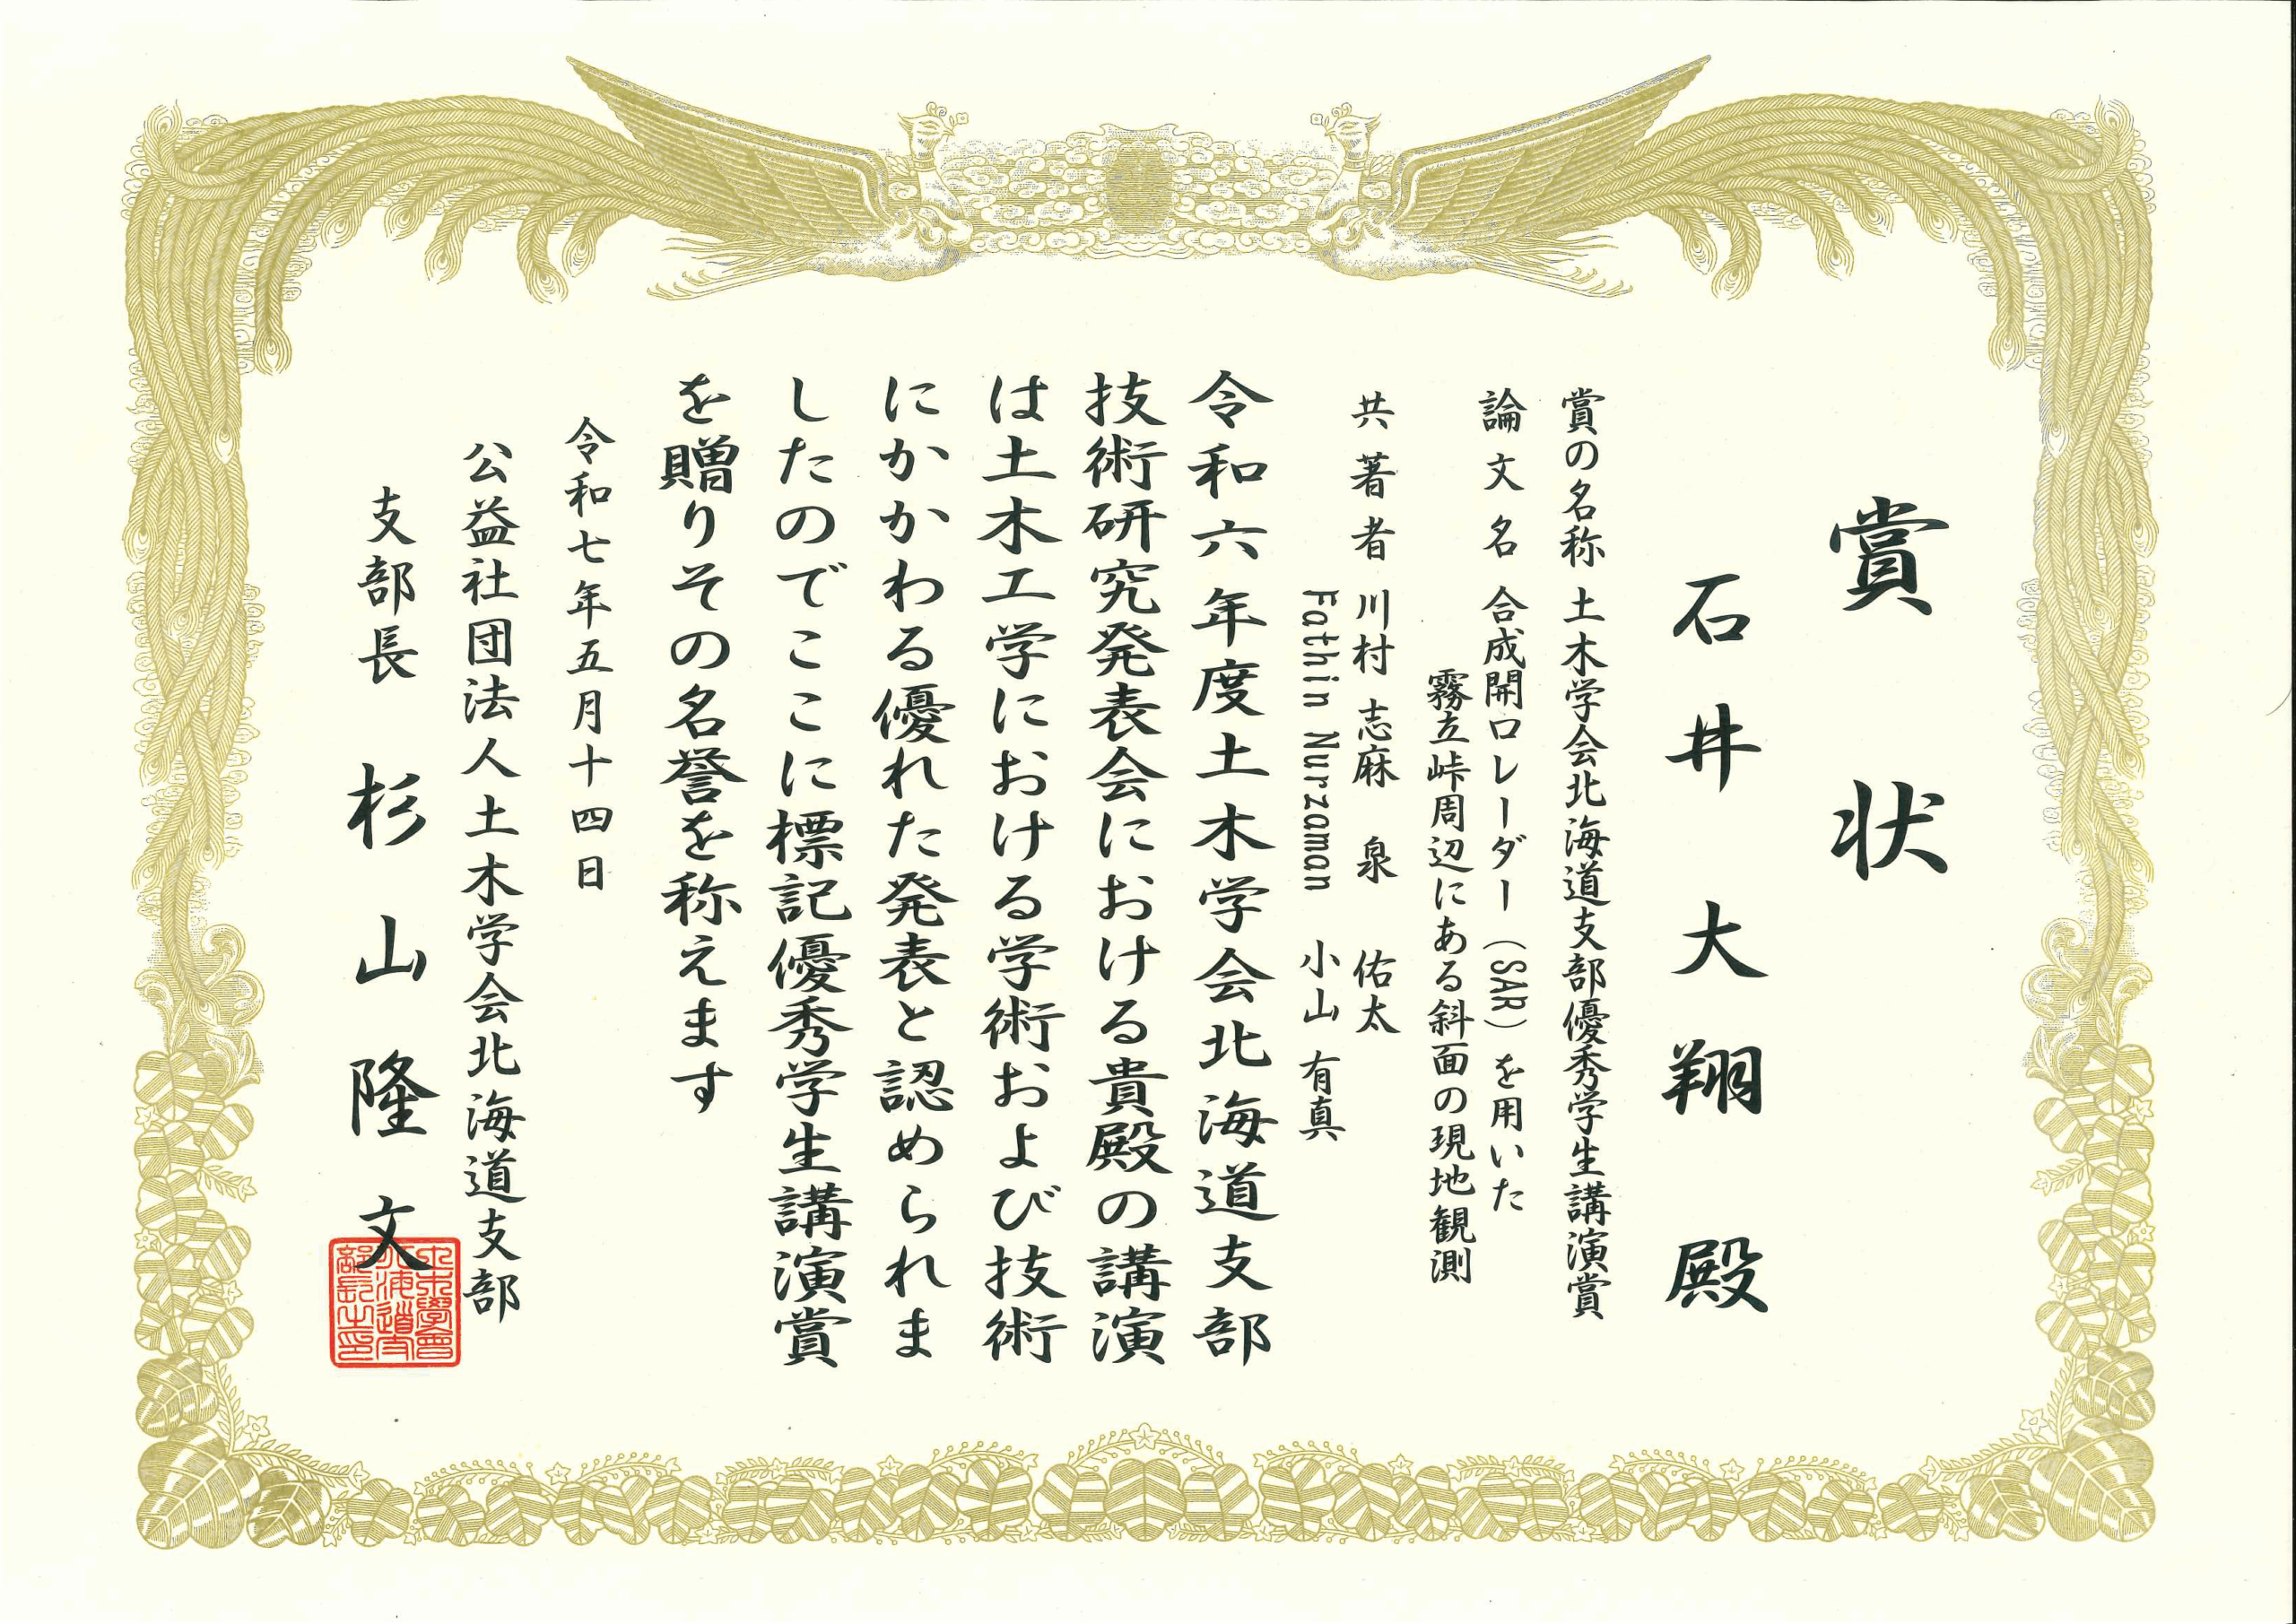 賞状
石井大翔殿
賞の名称 土木学会北海道支部優秀学生講演賞
論文名 合成開口レーダー（SAR）を用いた
霧立峠周辺にある斜面の現地観測
共著者 川村 志麻 泉 佑太
Fathin Nurzaman 小山 有真
令和六年度土木学会北海道支部
技術研究発表会における貴殿の講演
は土木工学における学術および技術
にかかわる優れた発表と認められま
したのでここに標記優秀学生講演賞
を贈りその名誉を称えます
令和七年五月十四日
公益社団法人土木学会北海道支部
支部長 杉山隆文
土木學會
北海道支
部長之印